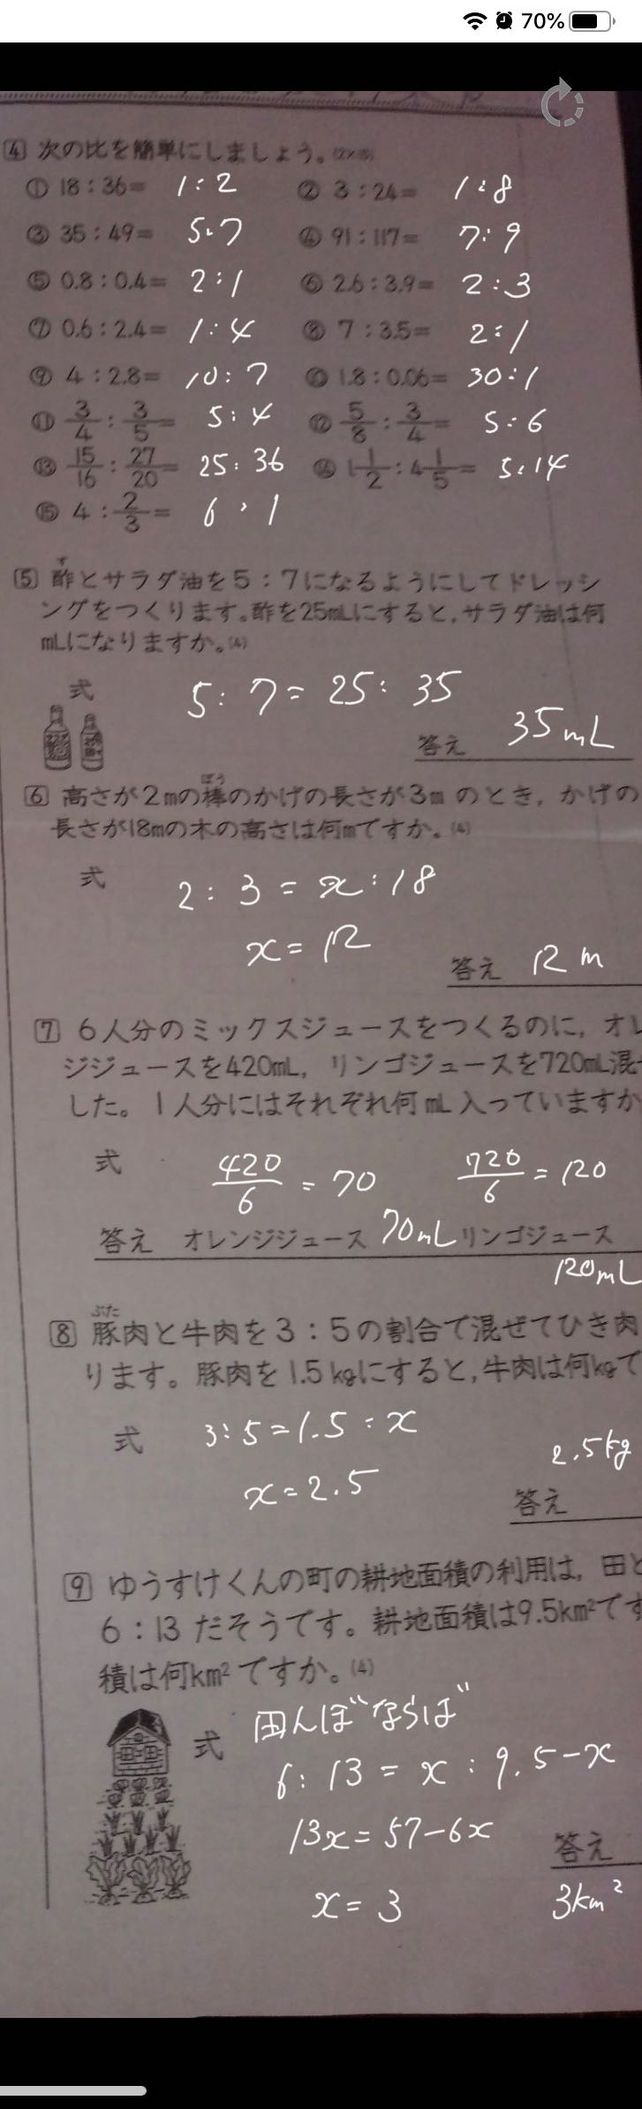 70%
4 次の比を簡単にしましょう。(2×15)
① 18:36= 1:2 ② 3:24= 1:8
③ 35:49= 5:7 ④ 91:117= 7:9
⑤ 0.8:0.4= 2:1 ⑥ 2.6:3.9= 2:3
⑦ 0.6:2.4= 1:4 ⑧ 7:3.5= 2:1
⑨ 4:2.8= 10:7 ⑩ 1.8:0.06= 30:1
⑪ 3/4:3/5= 5:4 ⑫ 5/8:3/4= 5:6
⑬ 15/16:27/20= 25:36 ⑭ 1 1/2:4 1/5= 5:14
⑮ 4:2/3= 6:1
す
5 酢とサラダ油を5:7になるようにしてドレッシ
ングをつくります。酢を25mLにすると,サラダ油は何
mLになりますか。(4)
式 5:7=25:35
答え 35mL
ぼう
6 高さが2mの棒のかげの長さが3mのとき,かげの
長さが18mの木の高さは何mですか。(4)
式 2:3=x:18
x=12
答え 12m
7 6人分のミックスジュースをつくるのに,オレ
ジジュースを420mL,リンゴジュースを720mL混
した。1人分にはそれぞれ何mL入っていますか
式 420/6=70 720/6=120
答え オレンジジュース 70mL リンゴジュース
120mL
ぶた
8 豚肉と牛肉を3:5の割合で混ぜてひき肉
ります。豚肉を1.5kgにすると,牛肉は何kgで
式 3:5=1.5:x
x=2.5
2.5kg
答え
9 ゆうすけくんの町の耕地面積の利用は,田と
6:13だそうです。耕地面積は9.5km²です
積は何km²ですか。(4)
式 田んぼならば
6:13=x:9.5-x
13x=57-6x
答え
x=3
3km²